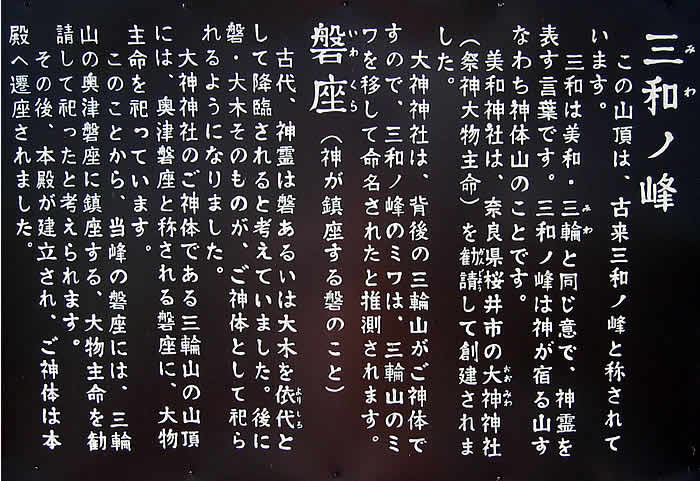 三和ノ峰
この山頂は、古来三和ノ峰と称されて
います。
三和は美和・三輪と同じ意で、神霊を
表す言葉です。三和ノ峰は神が宿る山す
なわち神体山のことです。
美和神社は、奈良県桜井市の大神神社
（祭神大物主命）を勧請して創建されま
した。
大神神社は、背後の三輪山がご神体で
すので、三和ノ峰のミワは、三輪山のミ
ワを移して命名されたと推測されます。
磐座（神が鎮座する磐のこと）
古代、神霊は磐あるいは大木を依代と
して降臨されると考えていました。後に
磐・大木そのものが、ご神体として祀ら
れるようになりました。
大神神社のご神体である三輪山の山頂
には、奥津磐座と称される磐座に、大物
主命を祀っています。
このことから、当峰の磐座には、三輪
山の奥津磐座に鎮座する、大物主命を勧
請して祀ったと考えられます。
その後、本殿が建立され、ご神体は本
殿へ遷座されました。